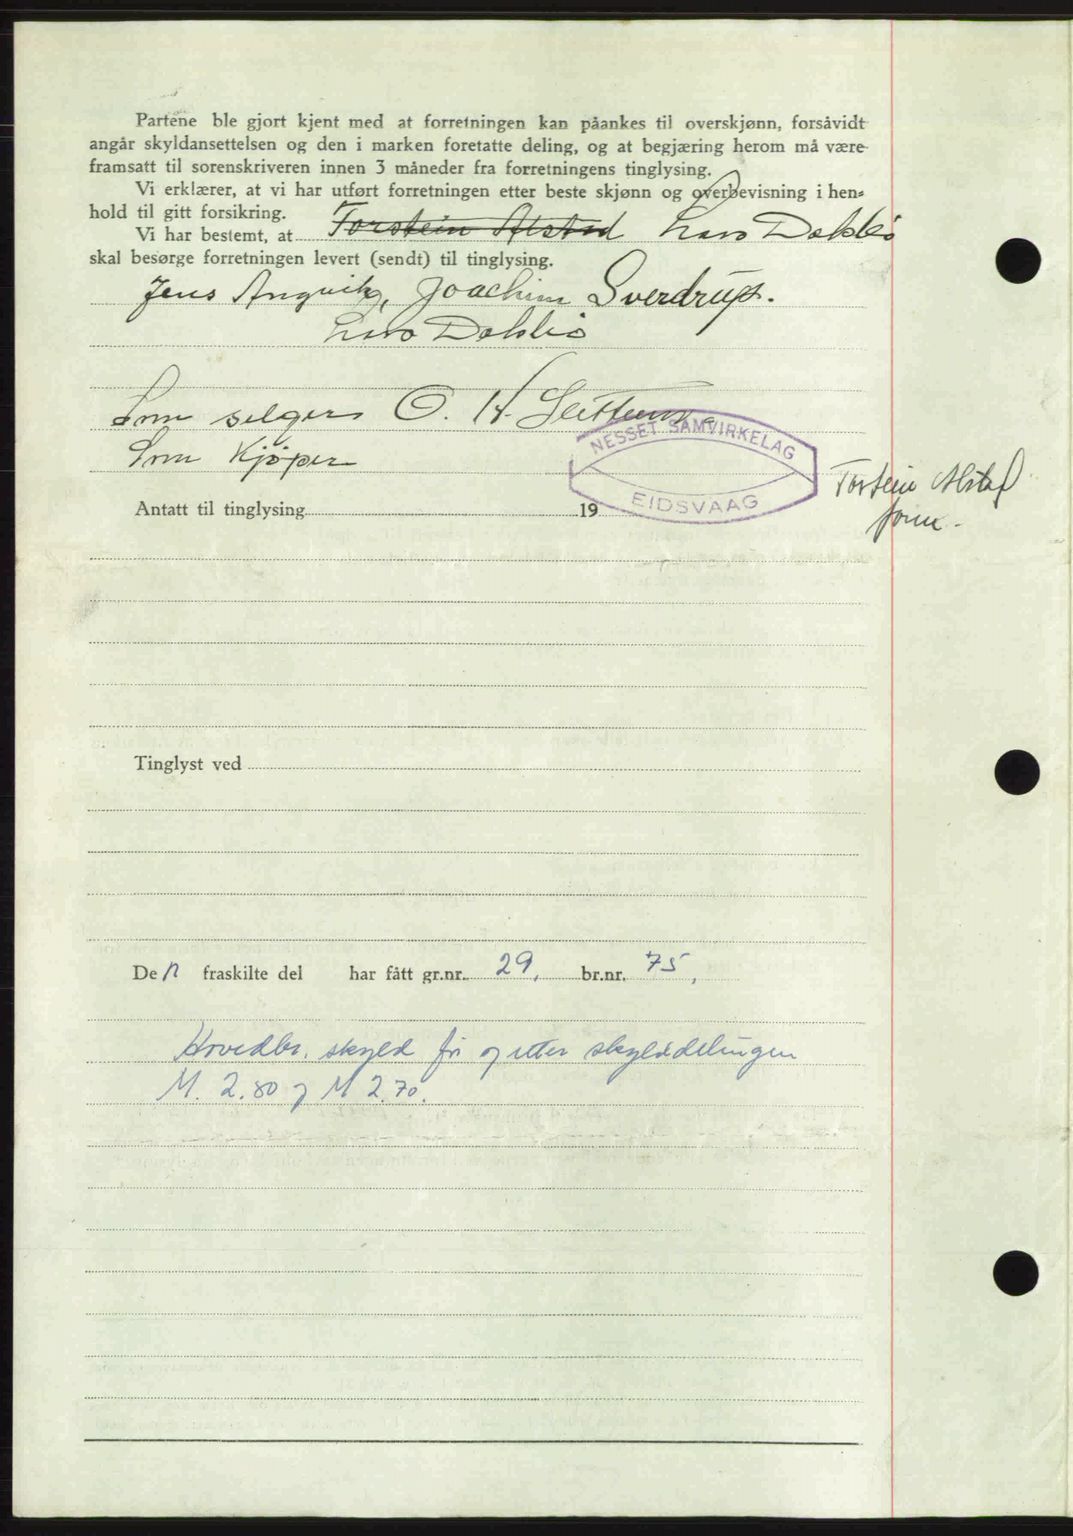 Partene ble gjort kjent med at forretningen kan påankes til overskjønn, forsåvidt
angår skyldansettelsen og den i marken foretatte deling, og at begjæring herom må være
framsatt til sorenskriveren innen 3 måneder fra forretningens tinglysing.
Vi erklærer, at vi har utført forretningen etter beste skjønn og overbevisning i hen=
hold til gitt forsikring.
Vi har bestemt, at Torstein Alstad Lars Dokli
skal besørge forretningen levert (sendt) til tinglysing.
Jens Angvik, Joachim Sverdrup.
Lars Dokli
Som selgers O. H.
Som Kjøper
NESSET SAMVIRKELAG
EIDSVAAG
Torstein Alstad
form.
Antatt til tinglysing 19
Tinglyst ved
Den fraskilte del har fått gr.nr. 29, br.nr. 75,
Hovedbr. skyld før og etter skylddelingen
M. 2.80 og M 2.70.